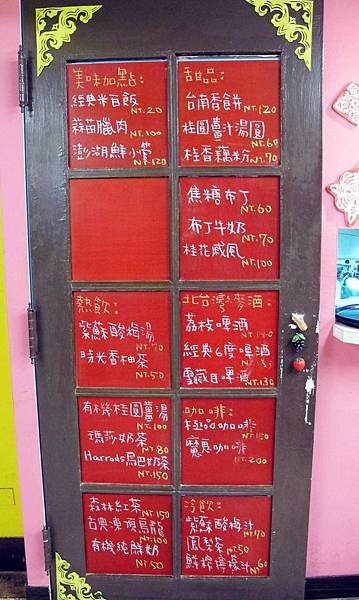 美味加點:
經典米豆飯
NT.20
蒜苗臘肉
NT.100
澎湖鮮小管
NT.120
甜品:
台南香餅
NT.120
桂圓薑汁湯圓
NT.60
桂香藕粉
NT.70
焦糖布丁
NT.60
布丁牛奶
NT.70
桂花戚風
NT.100
熱飲:
紫蘇酸梅湯
NT.70
時光香柚茶
NT.50
北台灣麥酒:
荔枝啤酒
經典6度啤酒
雪藏白啤酒
NT.130
有機桂圓薑湯
NT.100
瑪莎奶茶
NT.80
Harrods烏巴奶茶
NT.150
咖啡:
極品咖啡
NT.150
魔鬼咖啡
NT.200
森林紅茶
NT.150
古典凍頂烏龍
NT.100
有機純鮮奶
NT.50
冷飲:
紫蘇酸梅汁
NT.70
鳳梨茶
NT.50
鮮榨檸檬汁
NT.60